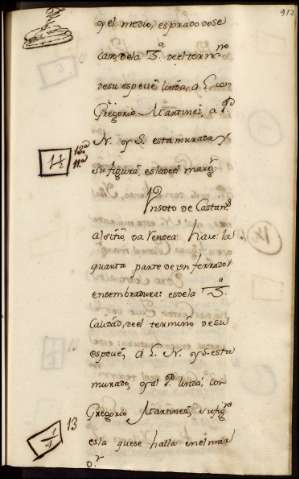 912
y el medio, es prado de se
cano, de la 3.ª de el term.no
de su espeuē linda, a L. con
Gregorio Martinez, a P.
N. y S. esta murada y
su figura es la de el marg.n
1½
12.ª
11.ª
Un soto de Castan.s
al sitio, da hace la
quarta parte de un ferrado
en sembradura: es de la 3.ª
Calidad, de el termino de su
espeuē, a L. N. y S. esta
murado, y al P. linda, con
Gregorio Martinez, su fig.ª
es la que se halla en el mar
g.n
1/4
13